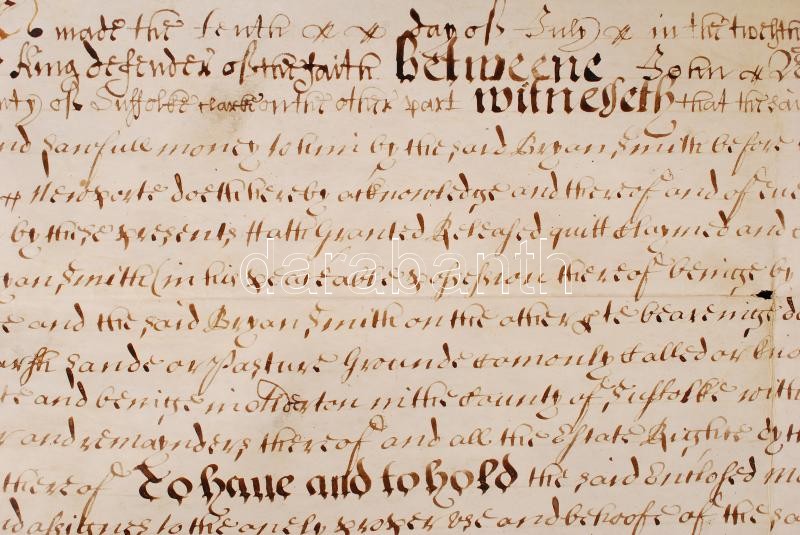 made the tenth x x day of July x in the twelfth
King defender of the faith betweene John x
nty of Suffolke clarke on the other part witnesseth that the sai
nd lawfull money to him by the said Bryan Smith before
x Newporte doeth hereby acknowledge and thereof and of eve
by these presents Hath Granted Released quitt claymed and
yan Smith (in his peaceable possession thereof beinge by
e and the said Bryan Smith on the other pte bearenige da
arsh Lande or Pasture Grounde comonly called or kno
te and beinge in Otterton in the County of Suffolke with
r and remaynders thereof and all the Estate Righte
thereof To have and to hold the said Enclosed
nd assignes to the onely proper use and behoofe of the sa
darabanth